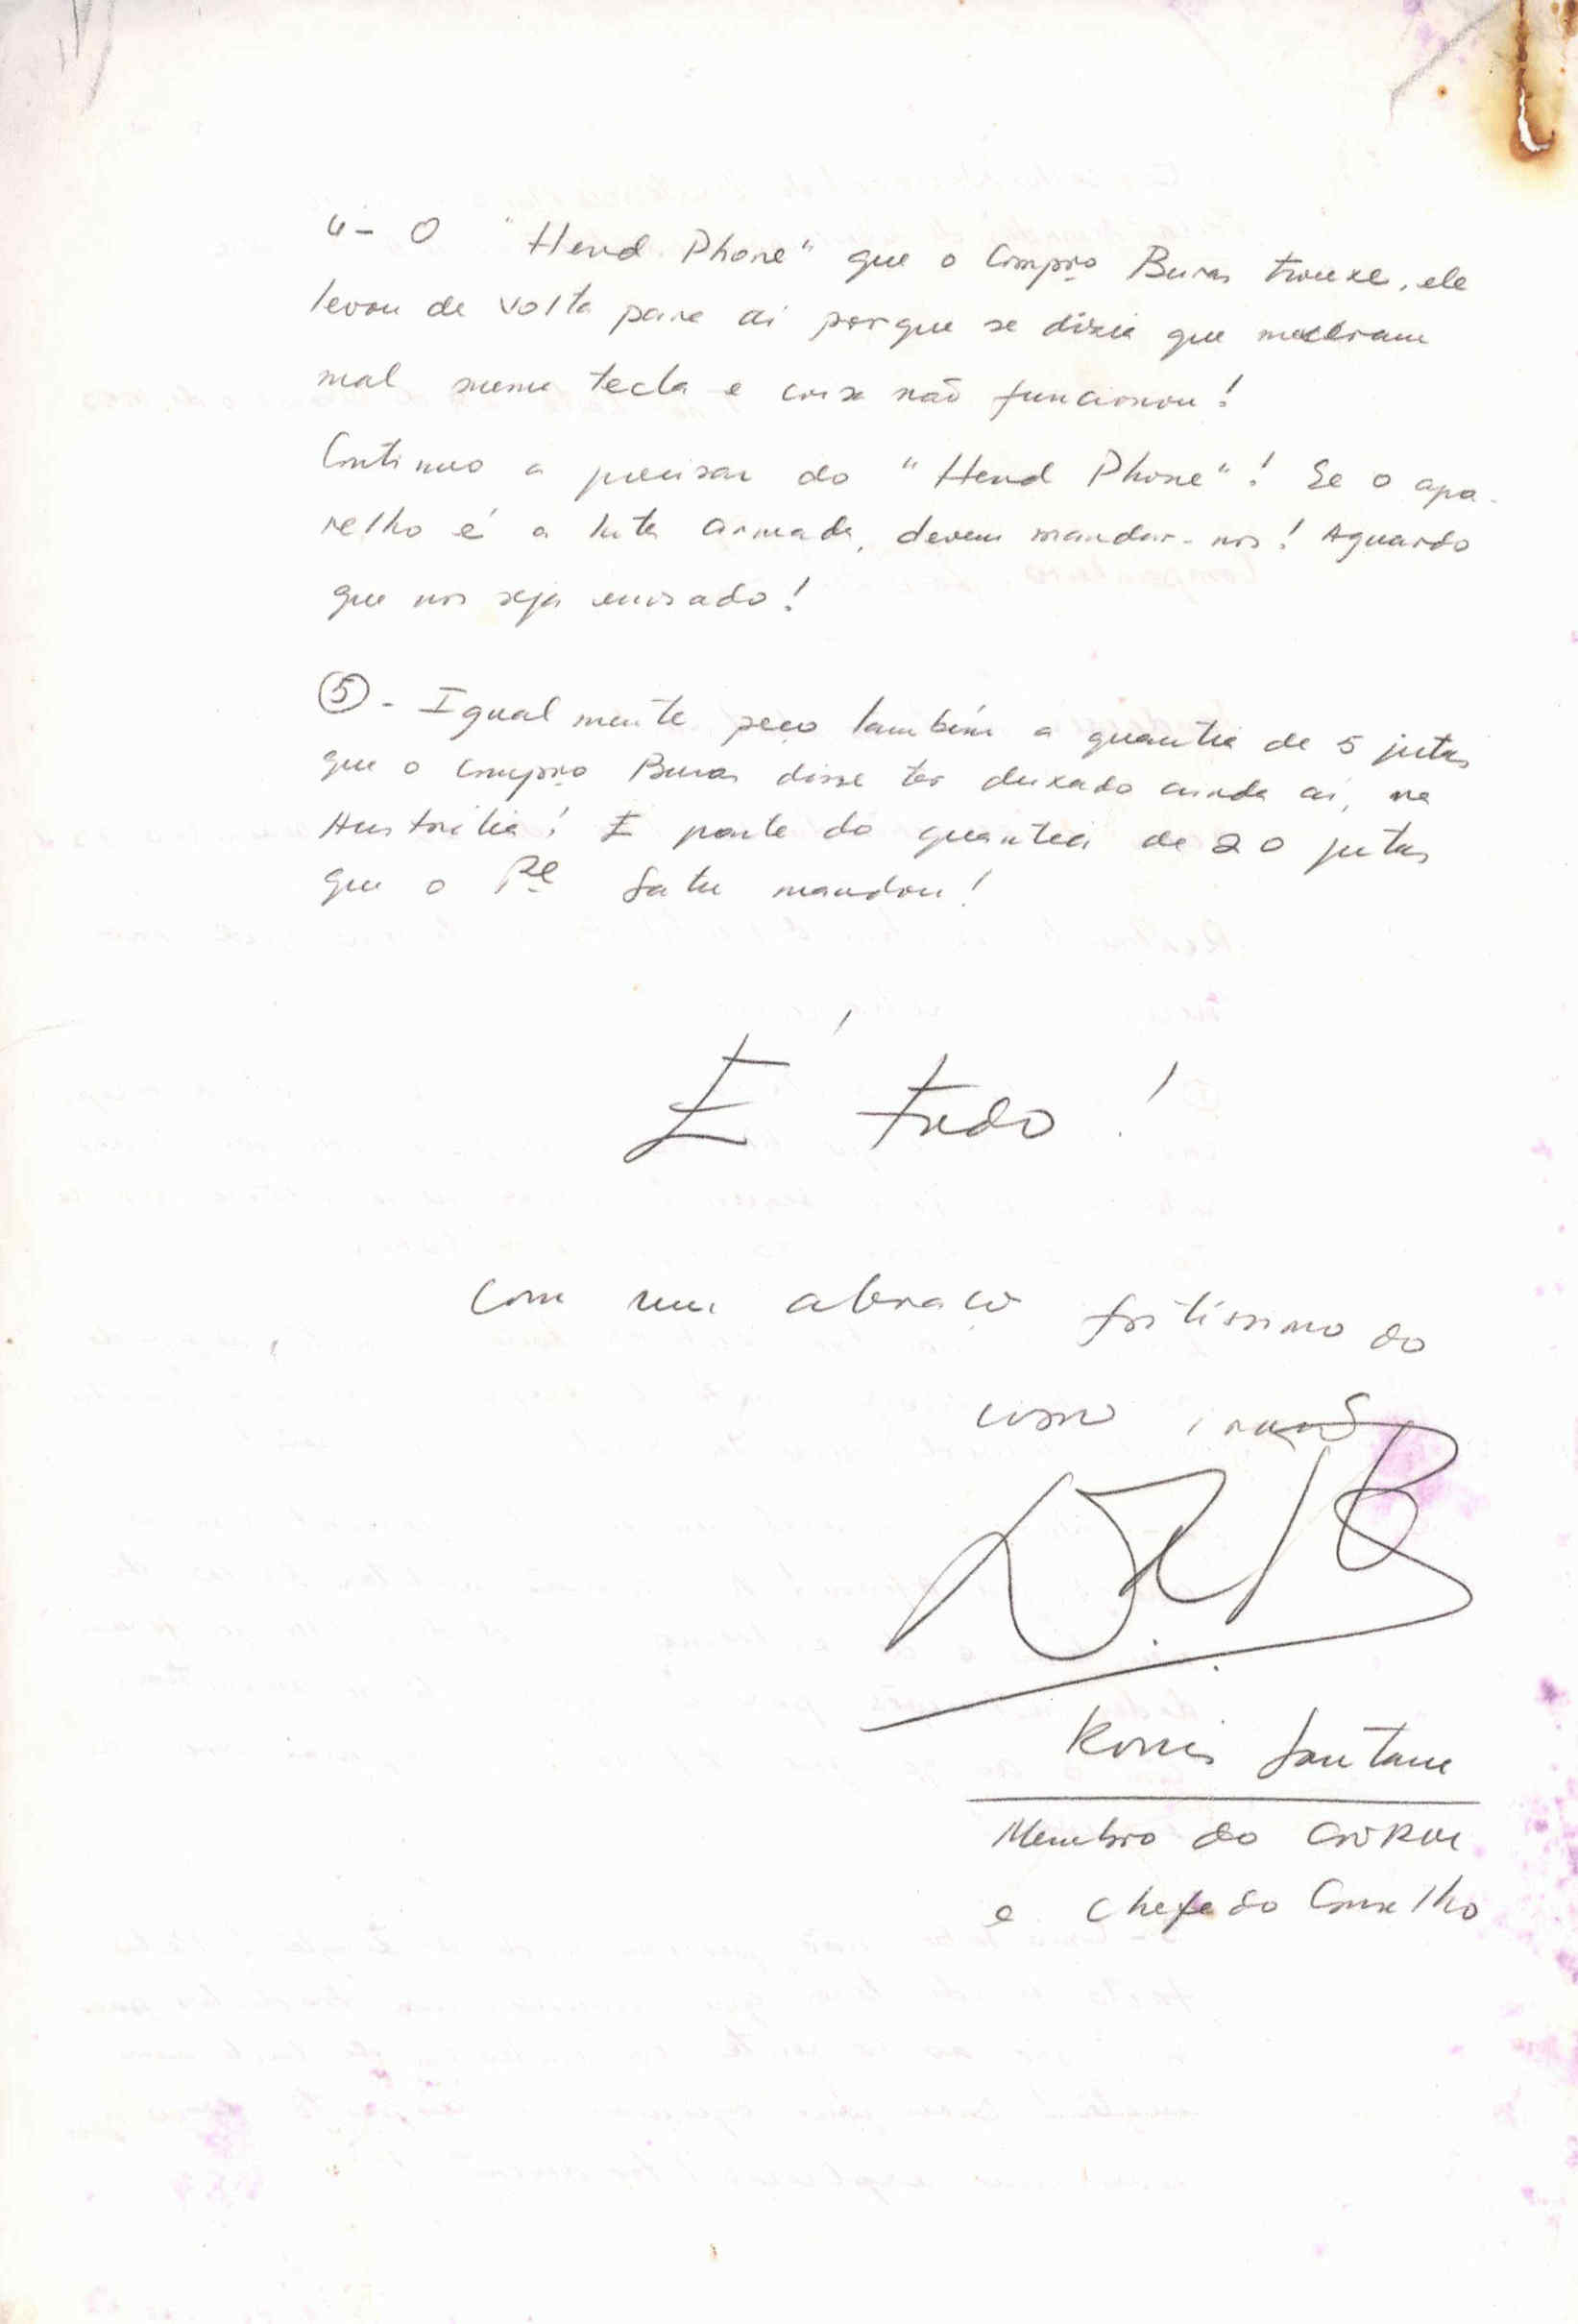 4- O "Hend Phone" que o Compro Buras trouxe, ele
levou de volta para aí porque se dizia que mexeram
mal numa tecla e coisa não funcionou!
Continuo a precisar do "Hend Phone"! Se o apa-
relho é a luta armada, devem mandar-nos! Aguardo
que nos seja enviado!
⑤- Igualmente peço também a quantia de 5 jutas
que o Compro Buras disse ter deixado ainda aí, na
Austrália! É parte da quantia de 20 jutas
que o Pe Satu mandou!
É tudo!
Com um abraço fortíssimo do
vosso irmão
Konis Santana
Membro do
e Chefe do Conselho